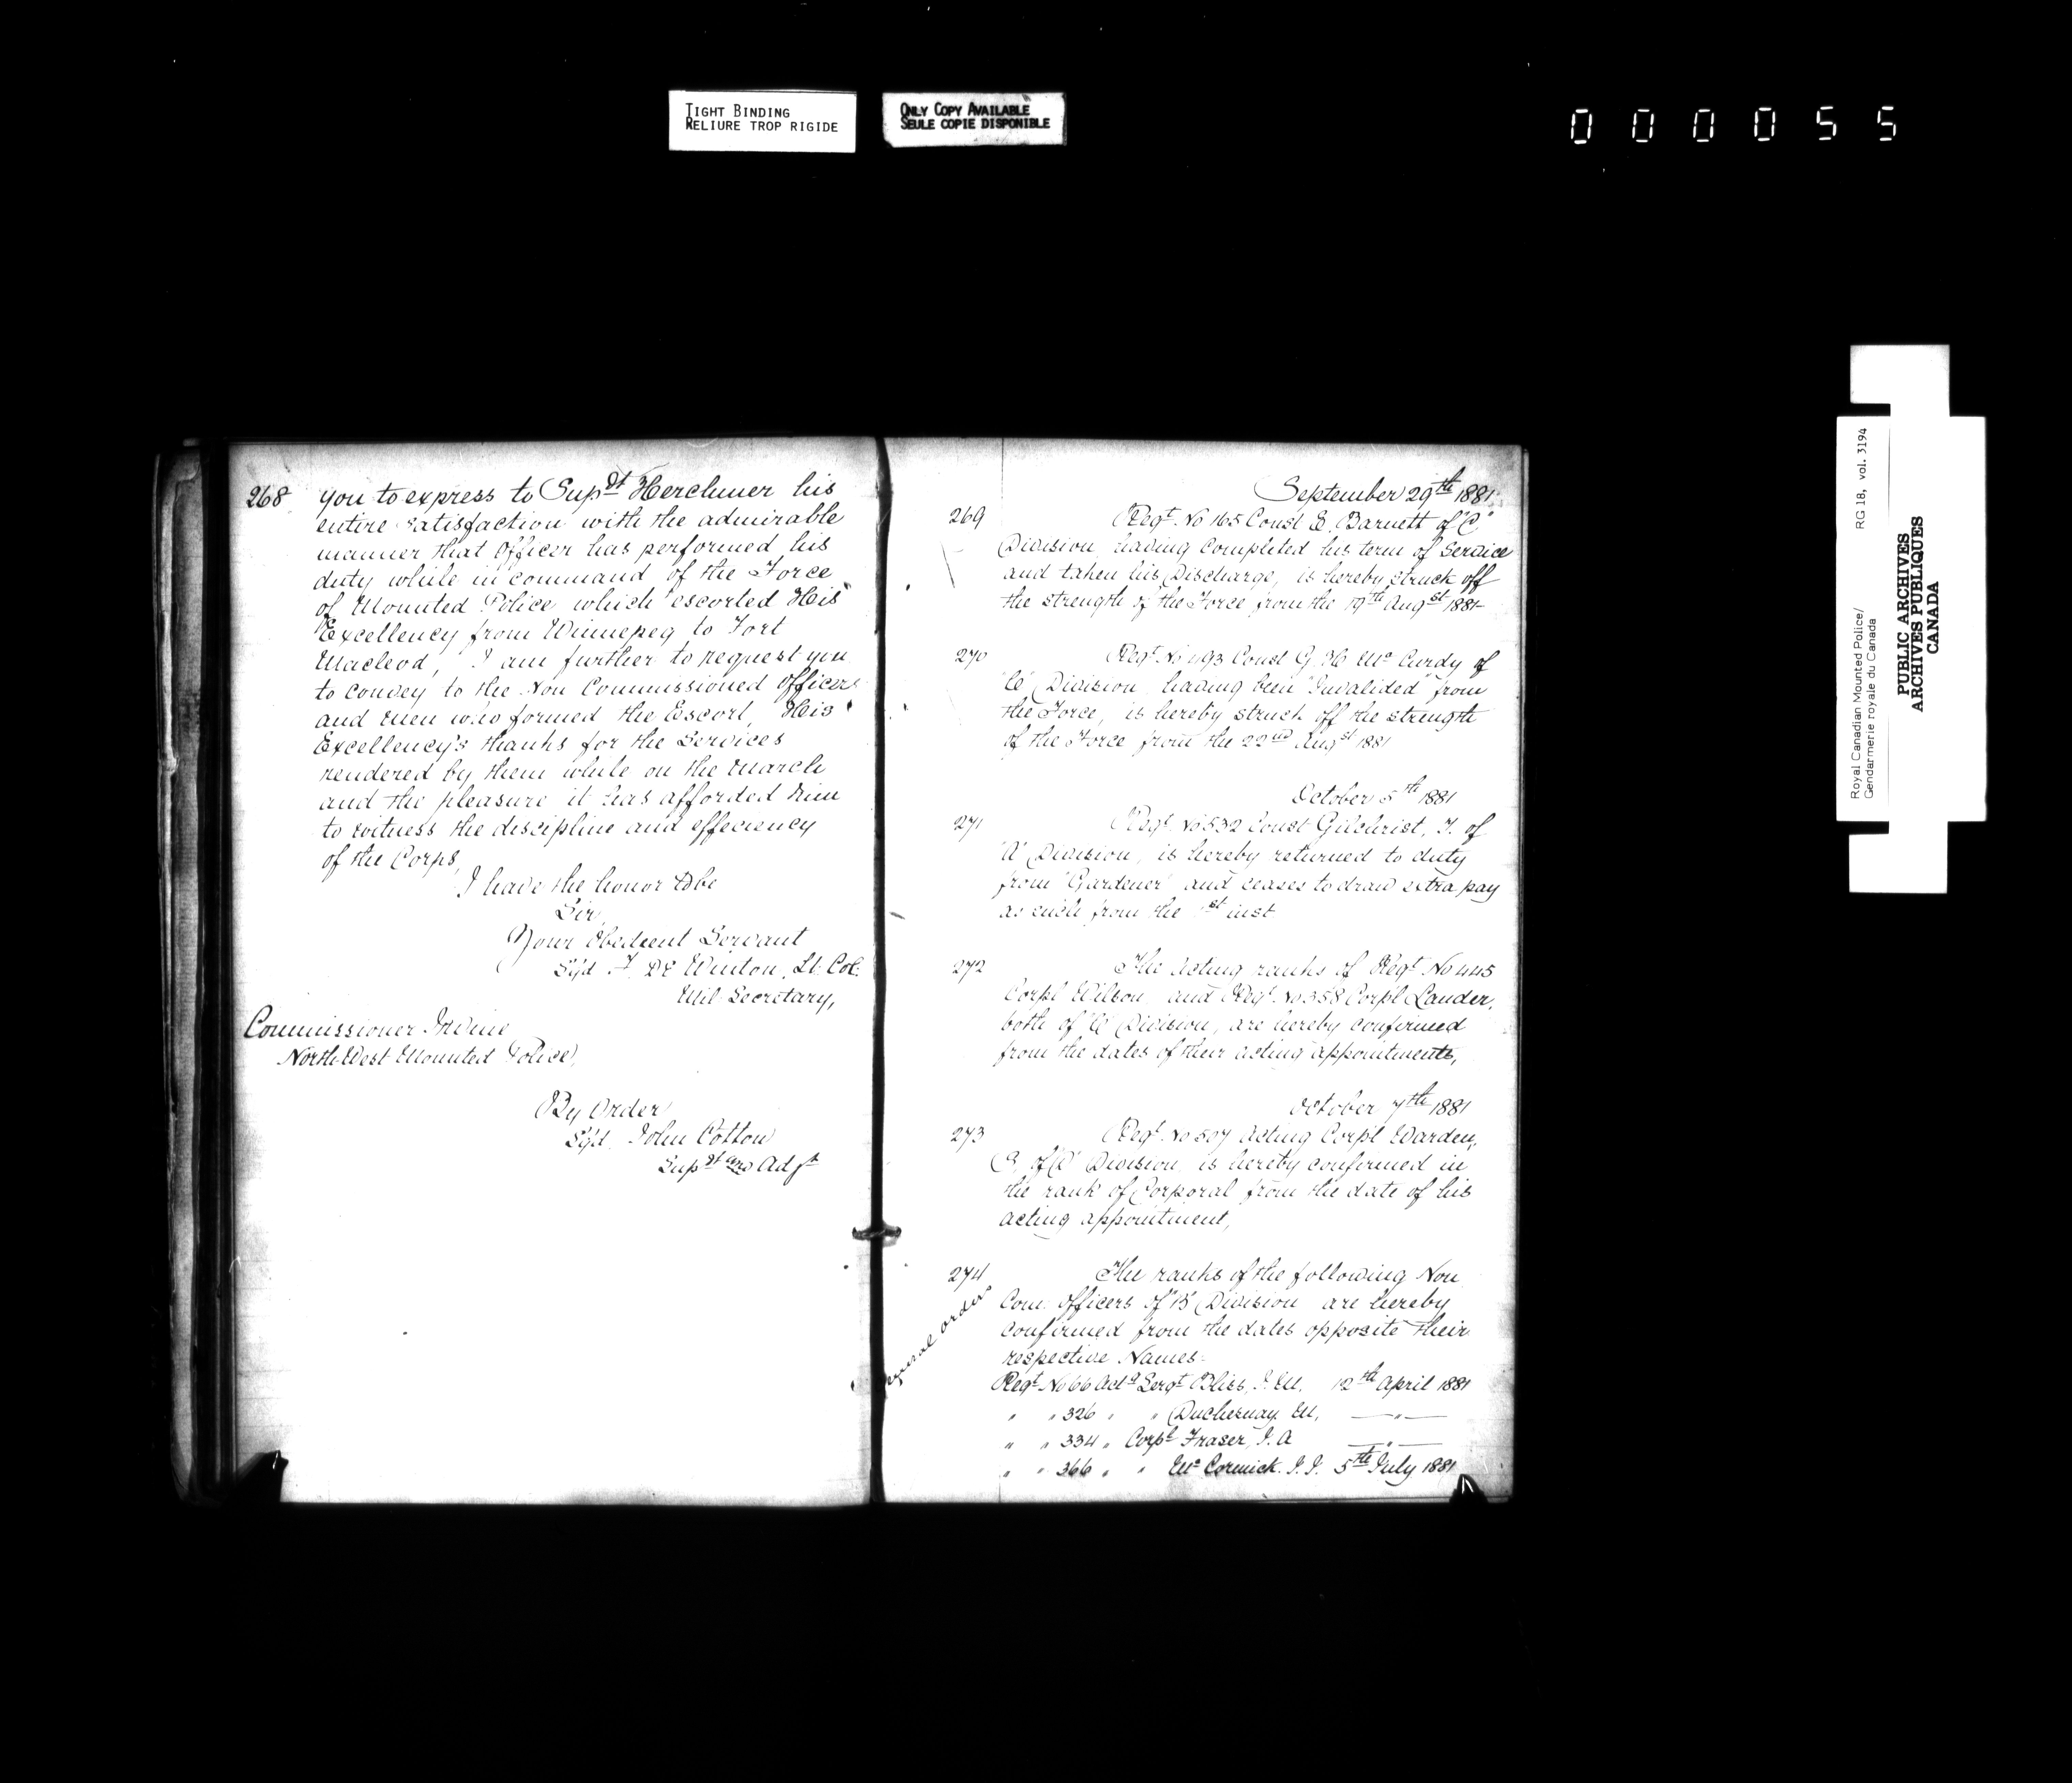 TIGHT BINDING
RELIURE TROP RIGIDE
ONLY COPY AVAILABLE
SEULE COPIE DISPONIBLE
000055
268 you to express to Supdt Herchmer his
entire satisfaction with the admirable
manner that Officer has performed his
duty while in command of the Force
of Mounted Police which escorted His
Excellency from Winnepeg to Fort
Macleod, I am further to request you
to convey to the Non Commissioned Officers
and Men who formed the Escort, His
Excellency's thanks for the Services
rendered by them while on the March
and the pleasure it has afforded him
to witness the discipline and effeciency
of the Corps,
I have the honor to be
Sir,
Your Obedient Servant
Sgd F. De Winton, Lt. Col.
Mil Secretary,
Commissioner Irvine
North West Mounted Police,
By Order
Sgd John Cotton
Supdt and Adjt
September 29th 1881
269 Regt. No 165 Const Barnett of "C"
Division having completed his term of Service
and taken his Discharge, is hereby struck off
the strength of the Force from the 19th Augst 1881
270 Regt No 493 Const G. H. McCurdy of
Division having been "Invalided" from
the Force, is hereby struck off the strength
of the Force from the 22nd Augst 1881
October 5th 1881
271 Regt. No 532 Const Gilchrist, T. of
"A" Division, is hereby returned to duty
from "Gardener" and ceases to draw extra pay
as such from the 1st inst.
272 The acting ranks of Regt No 445
Corpl Wilson and Regt. No 358 Corpl Lauder,
both of Division, are hereby confirmed
from the dates of their acting appointments,
October 7th 1881
273 Regt. No 507 Acting Corpl Warden,
of Division is hereby confirmed in
the rank of Corporal from the date of his
acting appointment,
274 The ranks of the following Non
Com. Officers of "B" Division are hereby
confirmed from the dates opposite their
respective Names.
General Order
Regt No 66 Actg Sergt Bliss, J. M. 12th April 1881
" " 326 " " Duchesnay M, — " —
" " 334 " Corpl Fraser, J. A — " —
" " 366 " " McCormick. J. J. 5th July 1881
Royal Canadian Mounted Police/
Gendarmerie royale du Canada
RG 18, vol. 3194
PUBLIC ARCHIVES
ARCHIVES PUBLIQUES
CANADA